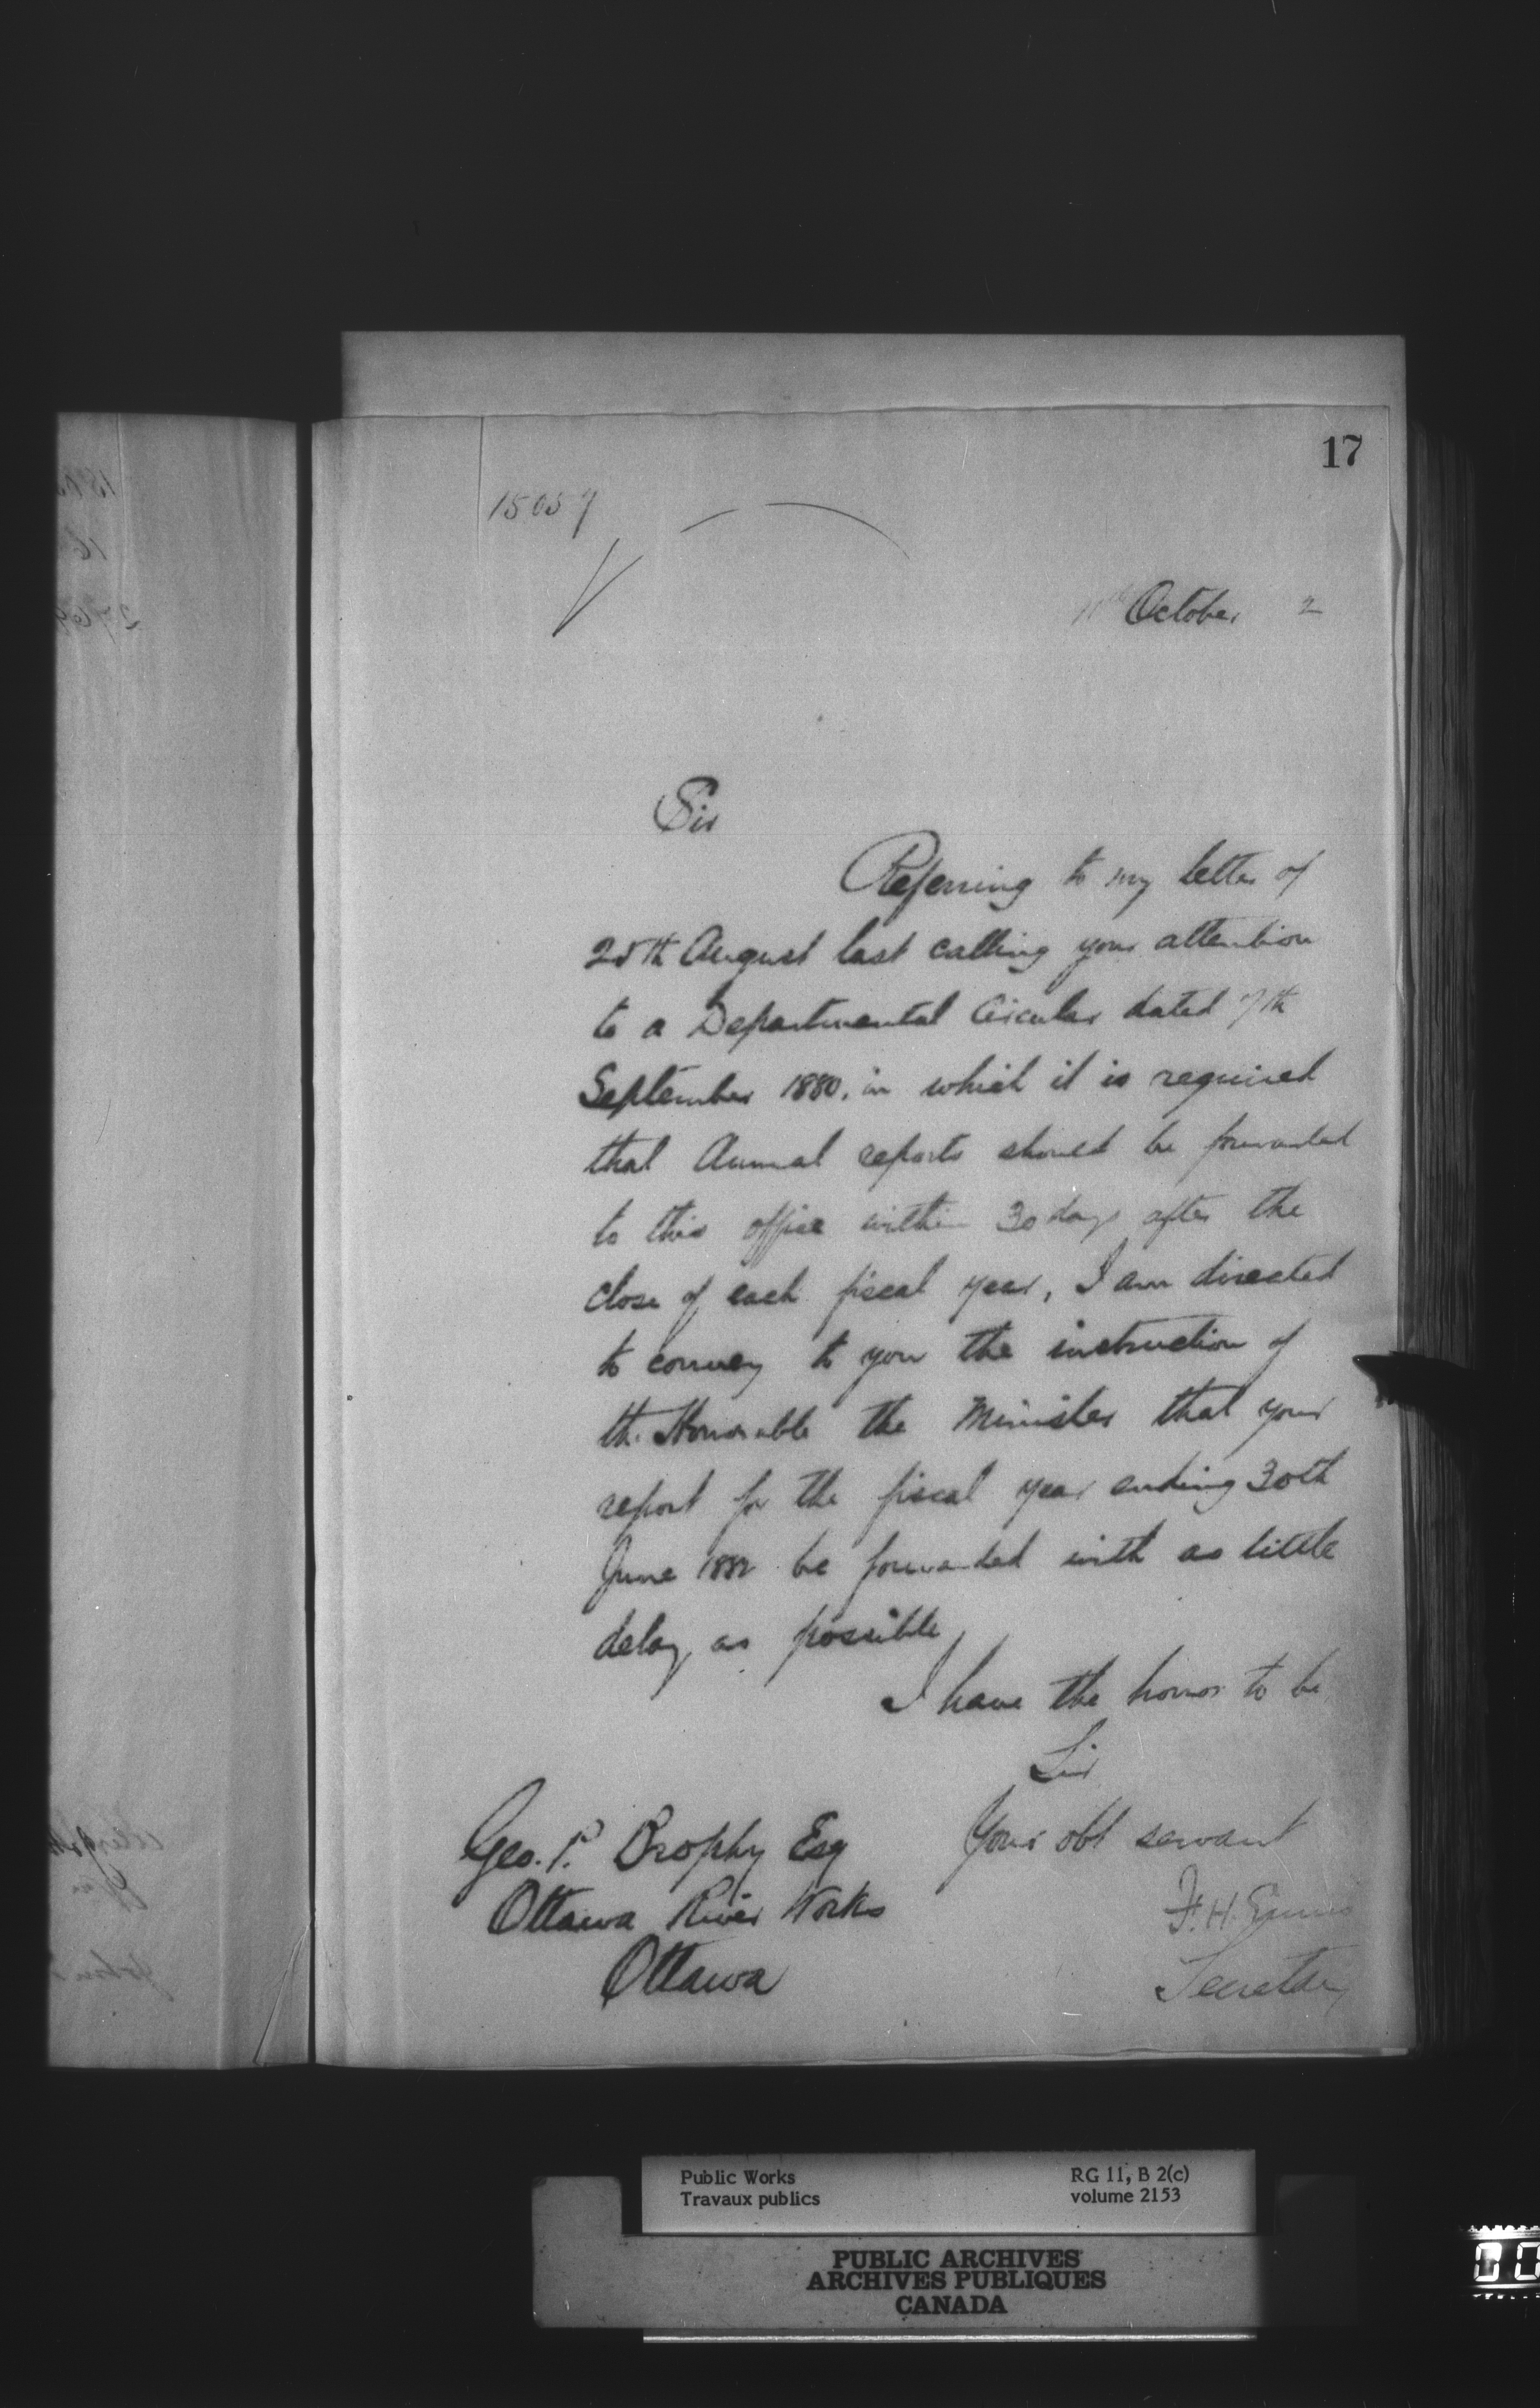 17
15059
October 2
Sir
Referring to my letter of
25th August last calling your attention
to a Departmental Circular dated 7th
September 1880, in which it is required
that Annual reports should be forwarded
to this office within 30 days after the
close of each fiscal year, I am directed
to convey to you the instruction of
the Honorable the Minister that your
report for the fiscal year ending 30th
June 1882 be forwarded with as little
delay as possible
I have the honor to be
Sir
Your obt servant
F. H. Ennis
Secretary
Geo. P. Brophy Esq
Ottawa River Works
Ottawa
Public Works
Travaux publics
RG 11, B 2(c)
volume 2153
PUBLIC ARCHIVES
ARCHIVES PUBLIQUES
CANADA